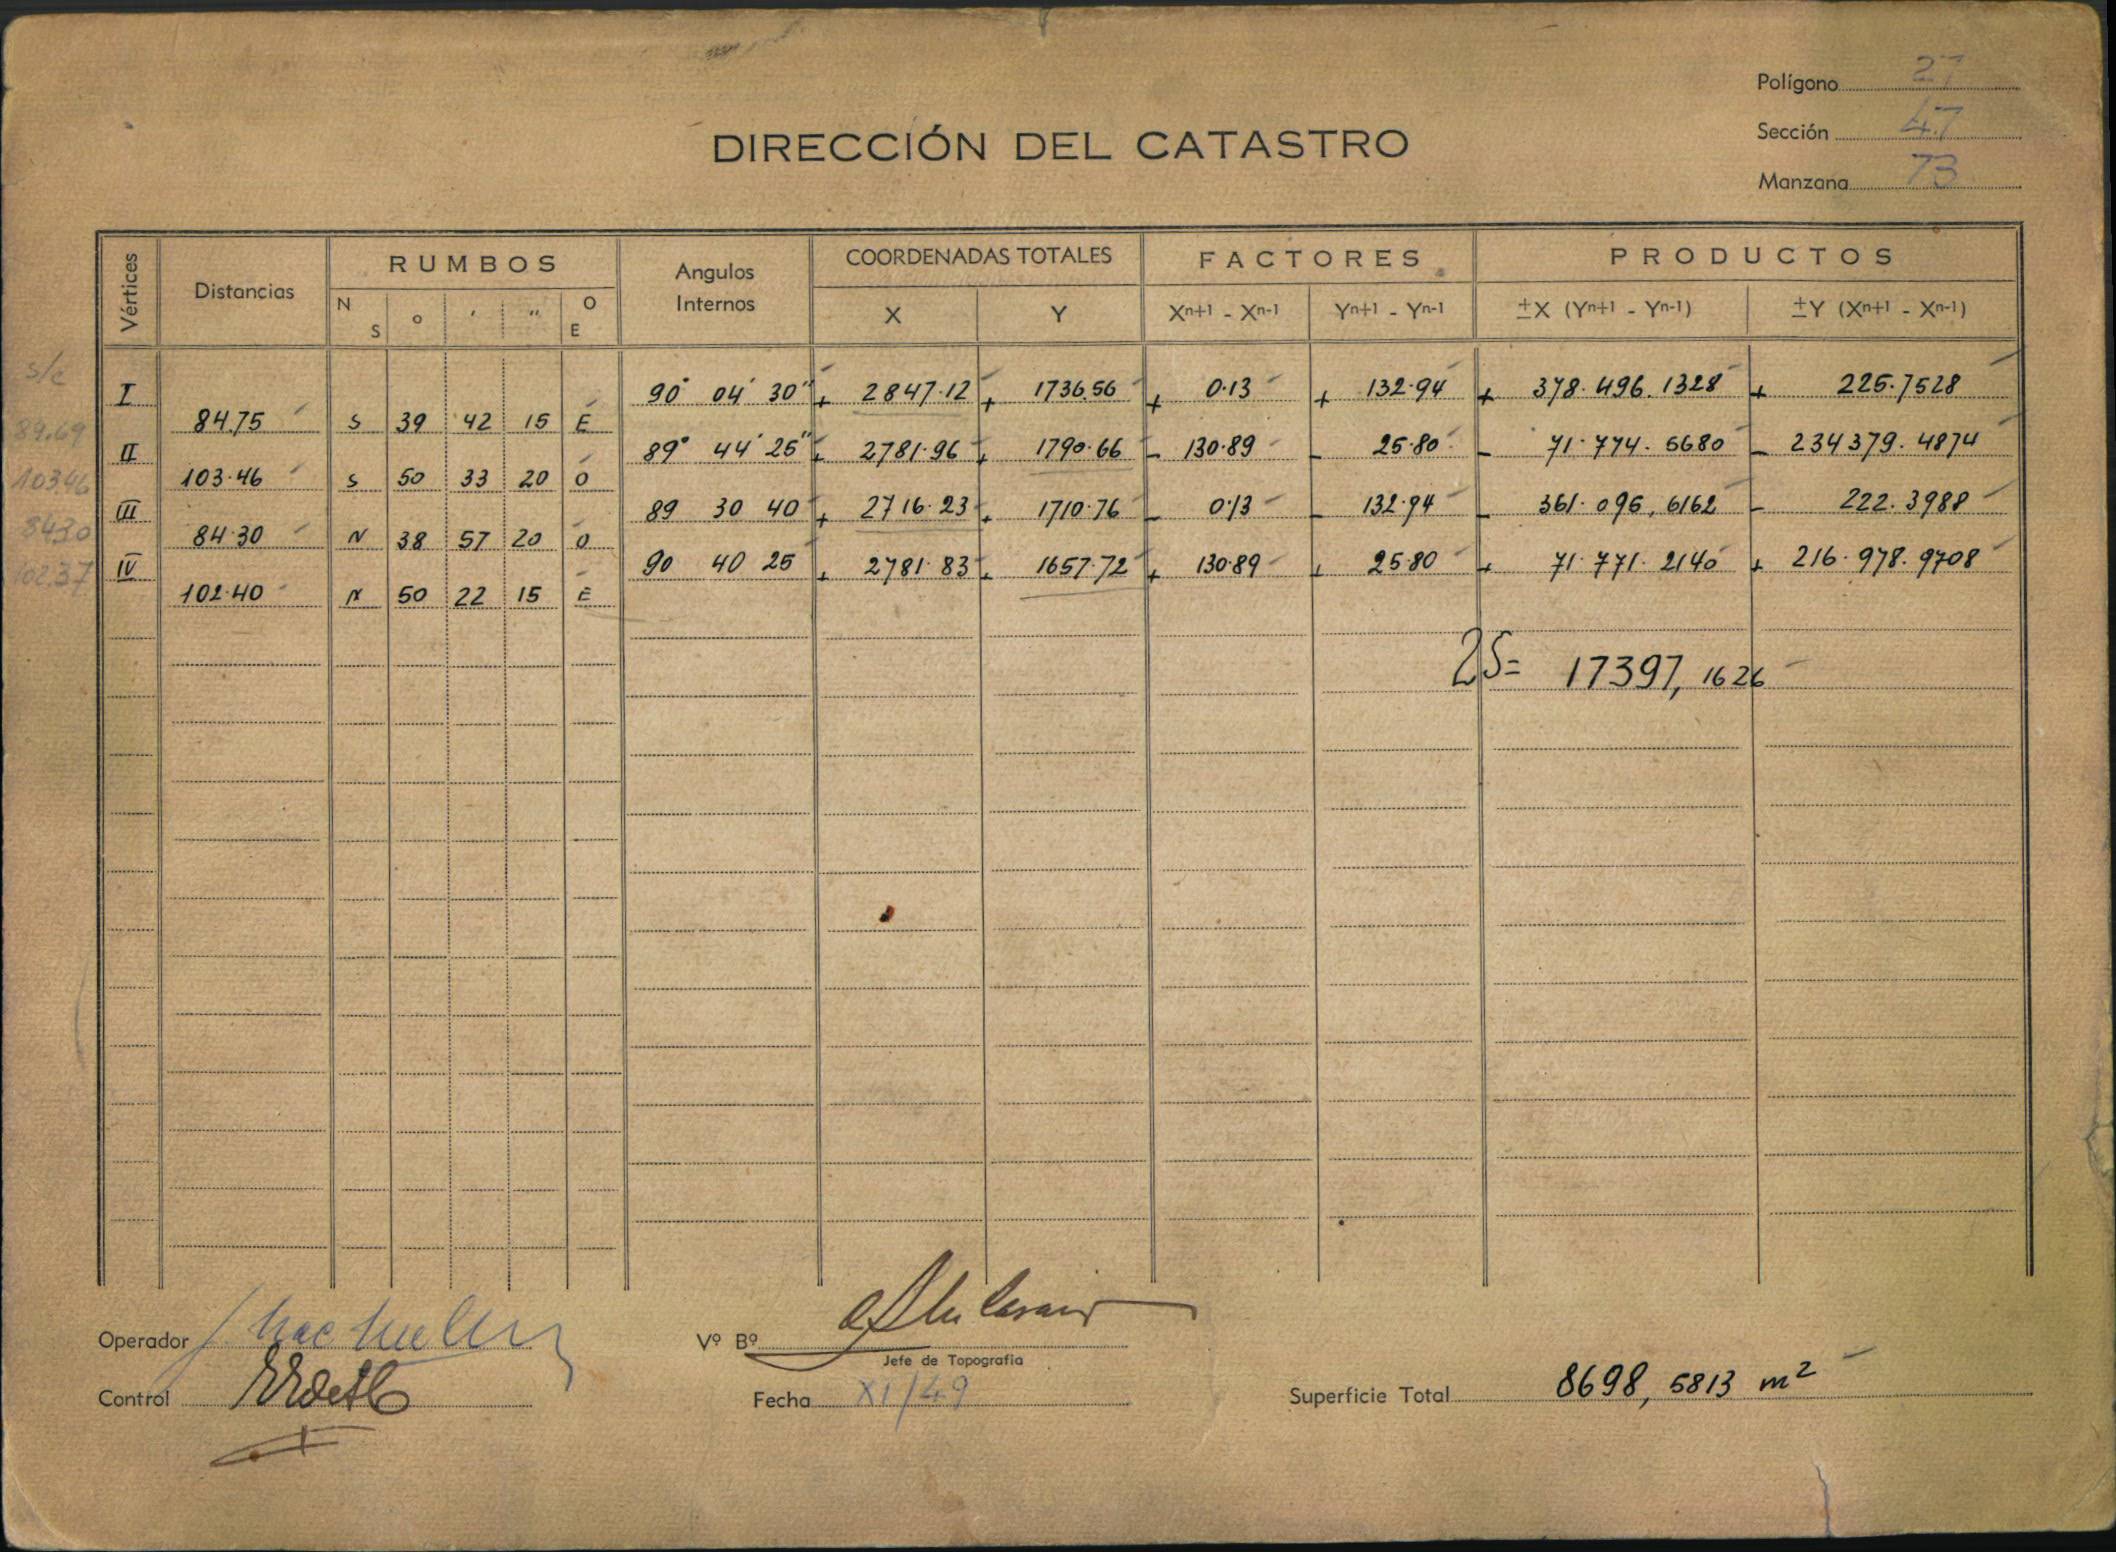 Polígono 27
Sección 47
Manzana 73
DIRECCIÓN DEL CATASTRO
Vértices Distancias RUMBOS Angulos Internos COORDENADAS TOTALES FACTORES PRODUCTOS
N S o ' " O E X Y Xn+1 - Xn-1 Yn+1 - Yn-1 ±X (Yn+1 - Yn-1) ±Y (Xn+1 - Xn-1)
s/c
I 90° 04' 30" + 2847.12 + 1736.56 + 0.13 + 132.94 + 378.496.1328 + 225.7528
89.69 84.75 S 39 42 15 E
II 89° 44' 25" + 2781.96 + 1790.66 - 130.89 - 25.80 - 71.774.5680 - 234379.4874
103.46 103.46 S 50 33 20 O
III 89 30 40 + 2716.23 + 1710.76 - 0.13 - 132.94 - 361.095,6162 - 222.3988
84.30 84.30 N 38 57 20 O
IV 90 40 25 + 2781.83 + 1657.72 + 130.89 + 25.80 + 71.771.2140 + 216.978.9708
102.37 102.40 N 50 22 15 E
2S= 17397,1626
Operador
Vº Bº
Jefe de Topografia
Control
Fecha XI/49
Superficie Total 8698,5813 m²